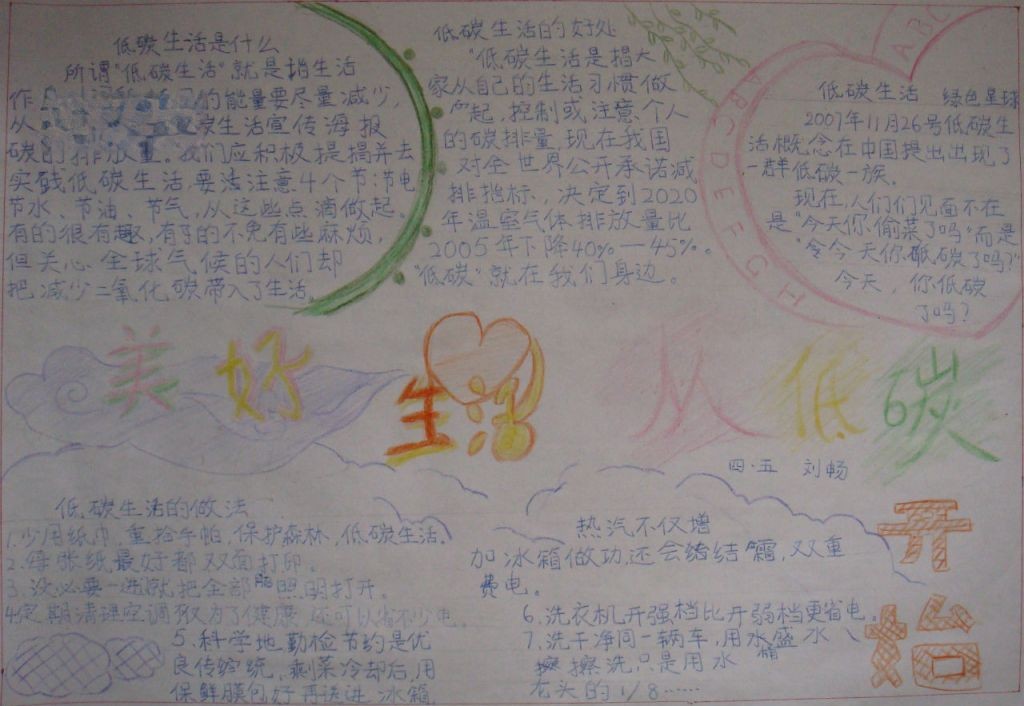 低碳生活是什么
所谓"低碳生活"就是指生活
作 的能量要尽量减少,
从 碳生活宣传海报
碳的排放量。我们应积极提搞并去
实践低碳生活,要注意4个节:节电
节水、节油、节气,从这些点滴做起。
有的很有趣,有的不免有些麻烦,
但关心全球气候的人们却
把减少二氧化碳带入了生活。
低碳生活的好处
"低碳生活是指大
家从自己的生活习惯做
起,控制或注意个人
的碳排量,现在我国
对全世界公开承诺减
排指标,决定到2020
年温室气体排放量比
2005年下降40%—45%。
"低碳"就在我们身边。
ABC
ABCDEFGH
低碳生活 绿色星球
2007年11月26号低碳生
活概念在中国提出出现了
一群低碳一族。
现在,人们们见面不在
是"今天你偷菜了吗"而是
"令今天你低碳了吗?"
今天,你低碳
了吗?
美好生活从低碳
开始
四·五 刘畅
低碳生活的做法
1.少用纸巾,重拾手帕,保护森林,低碳生活。
2.每张纸最好都双面打印。
3.没必要一进就把全部照明打开。
4.定期清理空调 为了健康 还可以省不少电。
5.科学地勤检节约是优
良传 统,剩菜冷却后,用
保鲜膜包好再送进冰箱
热汽不仅增
加冰箱做功,还会给结霜,双重
费电。
6.洗衣机开强档比开弱档更省电。
7.洗干净同一辆车,用水盛水
擦洗,只是用水
龙头的1/8……